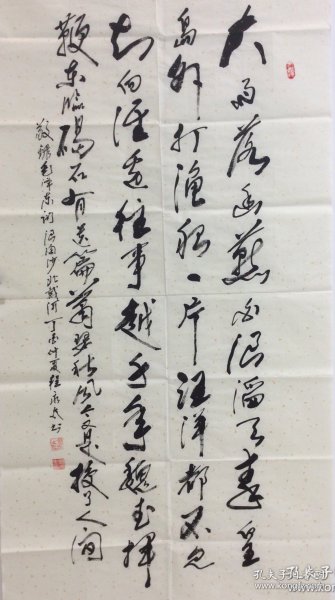 大雨落幽燕白浪滔天秦皇
岛外打渔船一片汪洋都不见
知向谁边往事越千年魏武挥
鞭东临碣石有遗篇萧瑟秋风今又是换了人间
敬錄毛泽东词浪淘沙北戴河丁酉仲夏